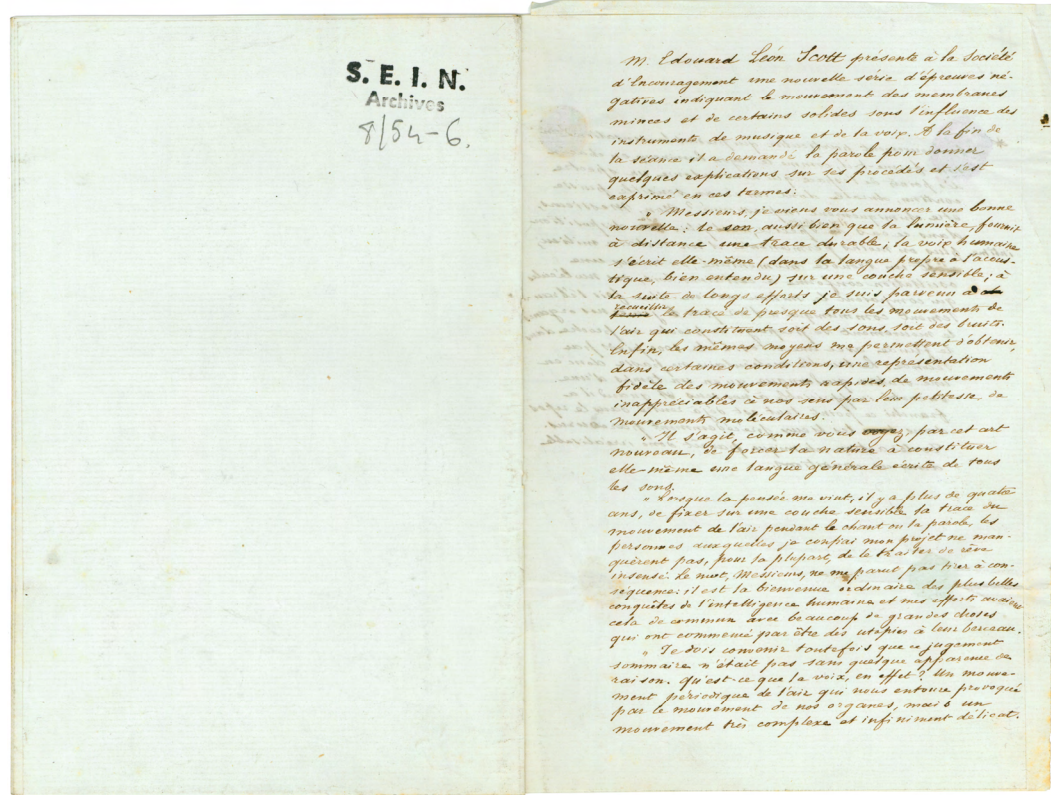 S. E. I. N.
Archives
8/54-6.
M. Edouard Léon Scott présente à la Société
d'Encouragement une nouvelle série d'épreuves né-
gatives indiquant le mouvement des membranes
minces et de certains solides sous l'influence des
instruments de musique et de la voix. A la fin de
la séance il a demandé la parole pour donner
quelques explications sur ses procédés et s'est
exprimé en ces termes:
" Messieurs, je viens vous annoncer une bonne
nouvelle: le son, aussi bien que la lumière, fournit
à distance une trace durable; la voix humaine
s'écrit elle-même (dans la langue propre à l'acous-
tique, bien entendu) sur une couche sensible; à
la suite de longs efforts je suis parvenu à
recueillir le tracé de presque tous les mouvements de
l'air qui constituent soit des sons, soit des bruits.
Enfin, les mêmes moyens me permettent d'obtenir,
dans certaines conditions, une représentation
fidèle des mouvements rapides, de mouvements
inappréciables à nos sens par leur petitesse, de
mouvements moléculaires.
" Il s'agit, comme vous voyez, par cet art
nouveau, de forcer la nature à constituer
elle-même une langue générale écrite de tous
les sons.
" Lorsque la pensée me vint, il y a plus de quatre
ans, de fixer sur une couche sensible la trace du
mouvement de l'air pendant le chant ou la parole, les
personnes auxquelles je confiai mon projet ne man-
quèrent pas, pour la plupart, de le traiter de rêve
insensé. Le mot, Messieurs, ne me parut pas tirer à con-
séquence: il est la bienvenue ordinaire des plus belles
conquêtes de l'intelligence humaine et mes efforts avaient
cela de commun avec beaucoup de grandes choses
qui ont commencé par être des utopies à leur berceau.
" Je dois convenir toutefois que ce jugement
sommaire n'était pas sans quelque apparence de
raison. Qu'est-ce que la voix, en effet? Un mouve-
ment périodique de l'air qui nous entoure provoqué
par le mouvement de nos organes, mais un
mouvement très complexe et infiniment délicat.